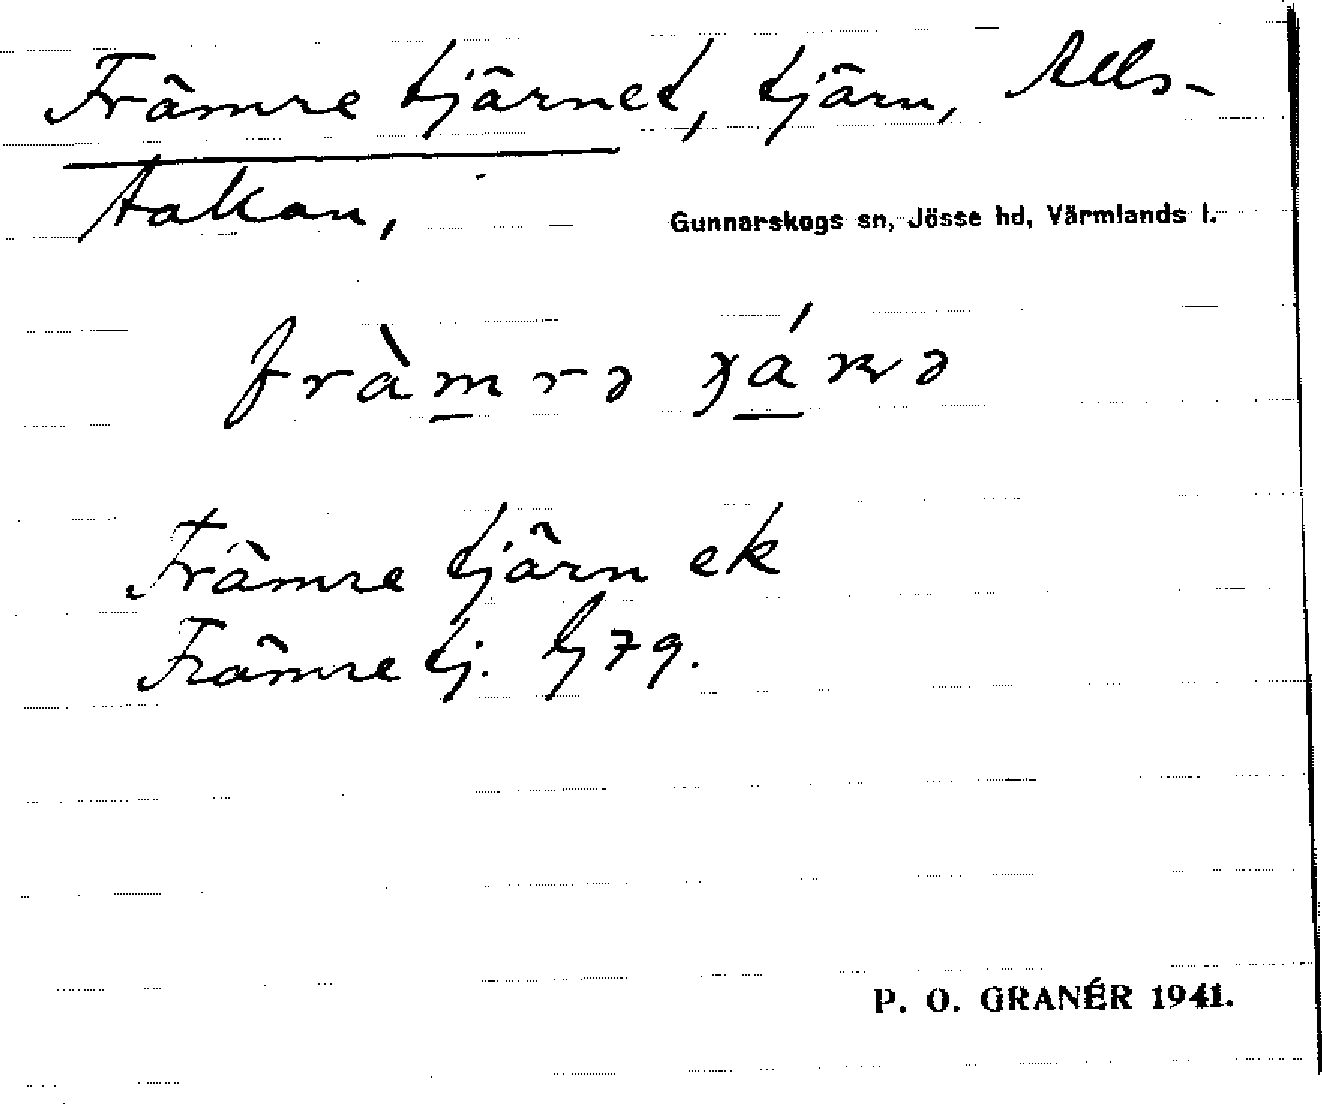 Främre tjärnet, tjärn, Alls-
takan,
Gunnarskogs sn, Jösse hd, Värmlands l.
fràmrə
Främre tjärn ek
Främre tj. G79.
P. O. GRANÉR 1941.